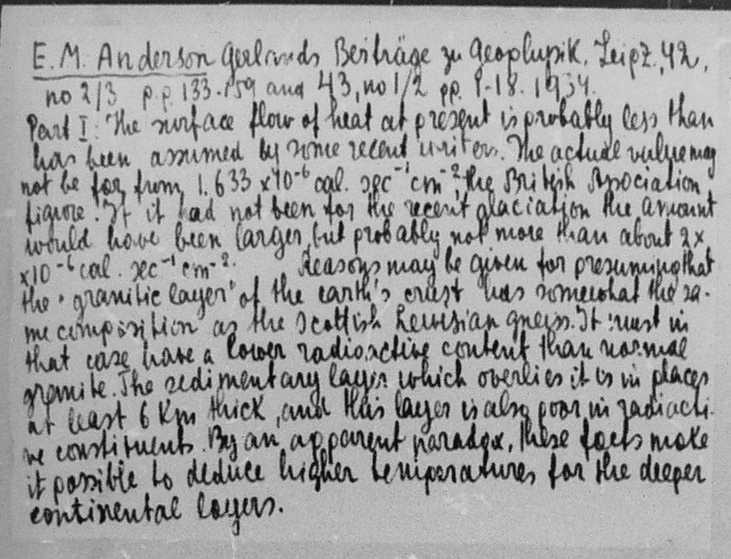 E. M. Anderson Gerlands Beiträge zu Geophysik. Leipz. 42,
no 2/3 p.p. 133-159 and 43, no 1/2 pp. 1-18. 1934.
Part I: The surface flow of heat at present is probably less than
has been assumed by some recent writers. The actual value may
not be far from 1.633 x 10⁻⁶ cal. sec⁻¹ cm⁻², the British Association
figure. If it had not been for the recent glaciation the amount
would have been larger, but probably not more than about 2x
x10⁻⁶ cal. sec⁻¹ cm⁻². Reasons may be given for presuming that
the "granitic layer" of the earth's crust has somewhat the sa-
me composition as the Scottish Lewisian gneiss. It must in
that case have a lower radioactive content than normal
granite. The sedimentary layer which overlies it is in places
at least 6 Km thick, and this layer is also poor in radiacti-
ve constituents. By an apparent paradox, these facts make
it possible to deduce higher temperatures for the deeper
continental layers.